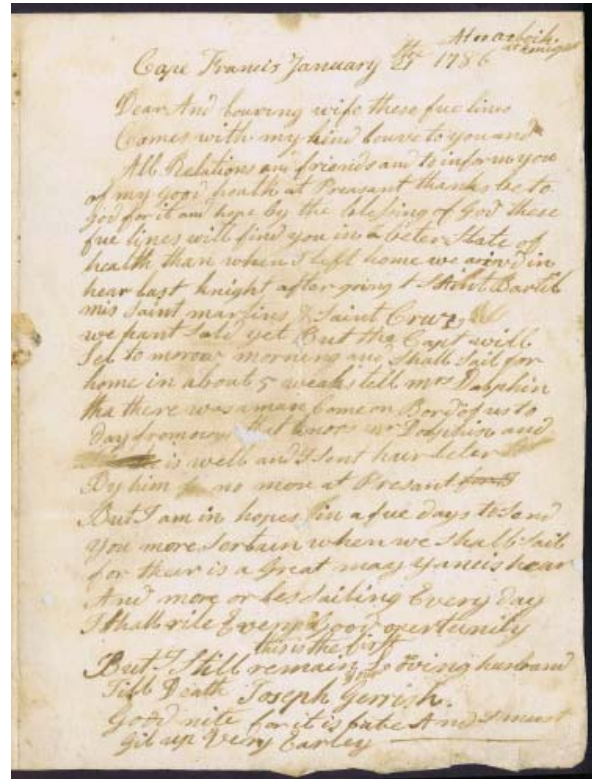 Cape Francis January the 21 1786
Dear And louving wife these fue lines
Comes with my kind louve to you and
All Relations and friends and to inform you
of my good health at Preasant thanks be to
god for it and hope by the blessing of God these
fue lines will find you in a beter State of
health than when I left home we arived in
hear last knight after going to Saint Bartel
mis Saint martins & Saint Cruz
we hant Sold yet But the Capt will
Sel to morow morning and Shall Sail for
home in about 5 weaks tell mrs Dolphin
tha there was a man Come on Bord of us to
day from that knows mr Dolphin and
is well and I Sent hair leter
By him no more at Preasant
But I am in hopes in a fue days to Send
you more Sertain when we Shall Sail
for their is a Great many yancis hear
And more or les Sailing Every day
I Shall rite Every Good opertunity
this is the first
But I Still remain your Loving husband
Till Death Joseph Gerrish.
Good nite for it is late And I must
git up Very Earley